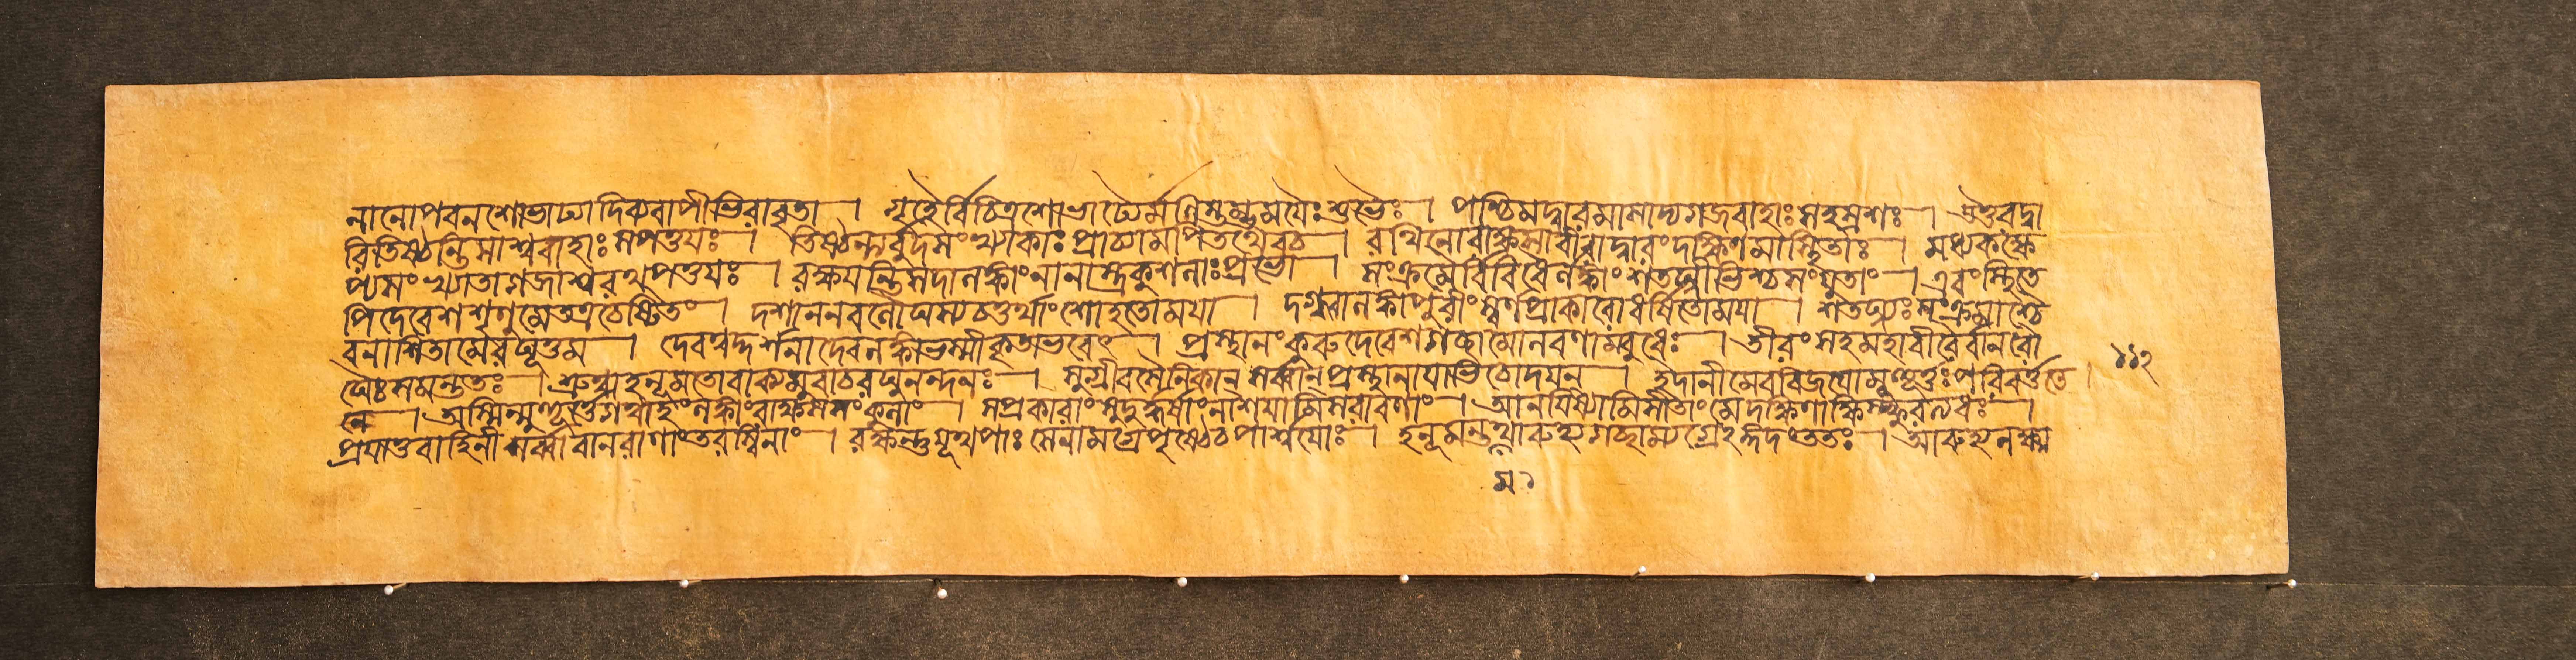 নানোপবনশোভাঢ্যাদিব্যবাপীভিরাবৃতা । গৃহৈর্বিচিত্রশোভাঢ্যৈর্মণিস্তম্ভময়ৈঃশুভৈঃ । পশ্চিমদ্বারমাসাদ্যগজবাহাঃসহস্রশঃ । উত্তরদ্বা
রিতিষ্ঠন্তিসাশ্ববাহাঃসপত্তয়ঃ । তিষ্ঠন্ত্যর্বুদসংখ্যাকাঃপ্রাচ্যামপিতথৈবচ । রথিনোরাক্ষসাবীরাদ্বারংদক্ষিণমাশ্রিতাঃ । মধ্যকক্ষে
প্যসংখ্যাতাগজাশ্বরথপত্তয়ঃ । রক্ষয়ন্তিসদালঙ্কাংনানাস্ত্রকুশলাঃপ্রভো । সংক্রমৈর্বিবিধৈর্লঙ্কাংশতঘ্নীভিশ্চসংযুতাং । এবংস্থিতে
পিদেবেশশৃণুমেতত্রচেষ্টিতং । দশাননবলৌঘস্যচতুর্থাংশোহতোময়া । দগ্ধ্বালঙ্কাংপুরীংস্বর্ণপ্রাকারোধর্ষিতোময়া । শতঘ্ন্যঃসংক্রমাশ্চৈ
বনাশিতামেরঘূত্তম । দেবত্বদ্দর্শনাদেবলঙ্কাভস্মীকৃতাভবেৎ । প্রস্থানংকুরুদেবেশগচ্ছামোলবণাম্বুধেঃ । তীরংসহমহাবীরৈর্বানরৌ
ঘৈঃসমন্ততঃ । শ্রুত্বাহনূমতোবাক্যমুবাচরঘুনন্দনঃ । সুগ্রীবসৈনিকান্ সর্ব্বান্প্রস্থানায়াভিচোদয়ন । ইদানীমেববিজয়োমুহূর্ত্তঃপরিবর্ত্ততে ।
অস্মিন্মুহূর্ত্তেগত্বাহংলঙ্কাংরাক্ষসসংকুলাং । সপ্রকারাংসুদুর্দ্ধর্ষাংনাশয়ামিসরাবণাং । আনয়িষ্যামিসীতাংমেদক্ষিণাক্ষিস্ফুরত্যধঃ ।
প্রয়াতুবাহিনীসর্ব্বাবানরাণাংতরস্বিনাং । রক্ষন্তুযূথপাঃসেনামগ্রেপৃষ্ঠেচপার্শ্বয়োঃ । হনূমন্তথারুহ্যগচ্ছাম্যগ্রেঙ্গদংততঃ । আরুহ্যলক্ষ্ম
ম১
১১২